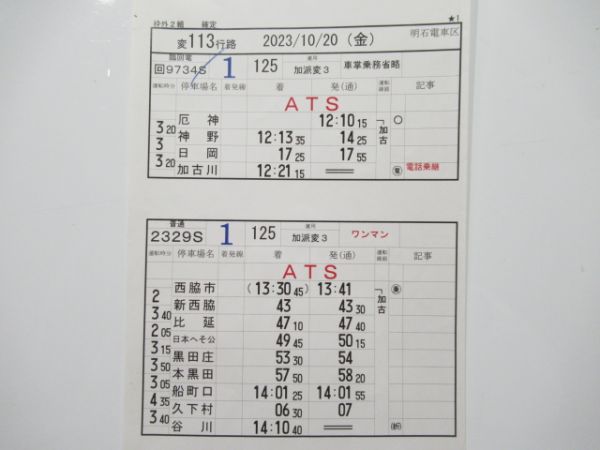 枠外2組 確定 ★1
変113行路 2023/10/20 (金) 明石電車区
臨回電 運用
回9734S 1 125 加派変3 車掌乗務省略
運転時分 停車場名 着発線 着 発(通) 運転線路 記事
ATS
厄神 12:10 15 「加古 ○
3 20 神野 12:13 35 14 25
3 日岡 17 25 17 55
3 20 加古川 12:21 15 ══ 電話乗継
普通 運用
2329S 1 125 加派変3 ワンマン
運転時分 停車場名 着発線 着 発(通) 運転線路 記事
ATS
西脇市 (13:30 45) 13:41 「加古
2 新西脇 43 43 30
3 40 比延 47 10 47 40
2 05 日本へそ公 49 45 50 15
3 15 黒田庄 53 30 54
3 50 本黒田 57 50 58 20
3 05 船町口 14:01 25 14:01 55
4 35 久下村 06 30 07
3 40 谷川 14:10 40 ══ (折)